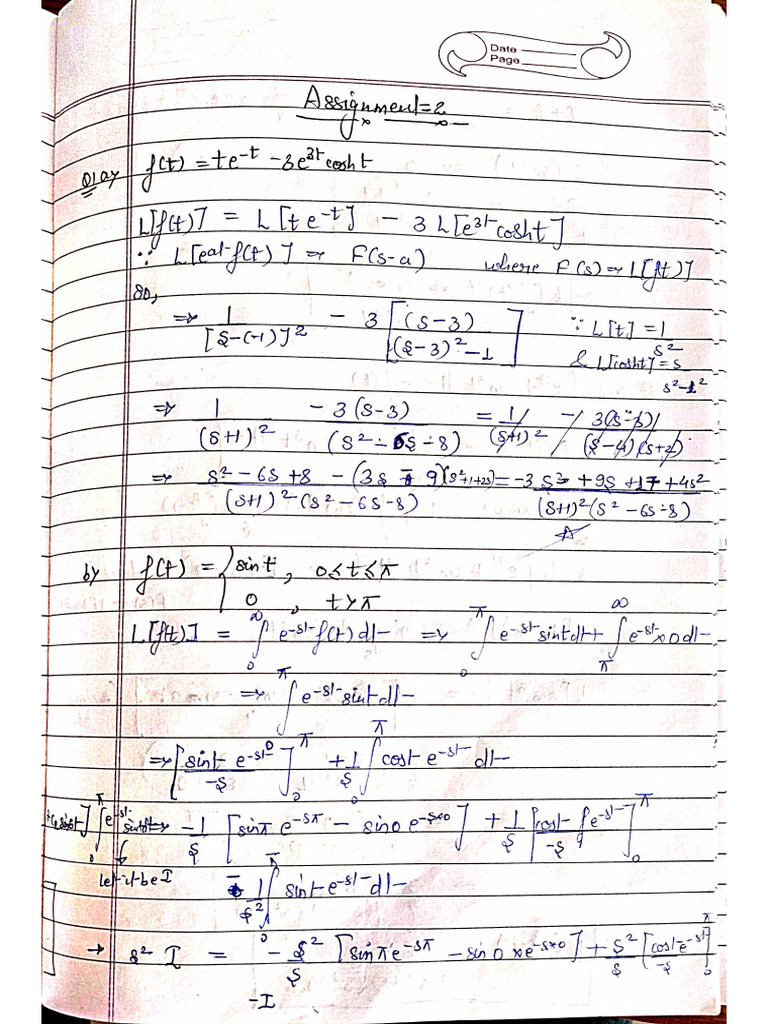 Date
Page
Assignment=2
Q1 a) f(t) = te^-t - 3e^3t cosht
L[f(t)] = L[te^-t] - 3L[e^3t cosht]
∵ L[e^at f(t)] => F(s-a) where F(s) => L[f(t)]
so,
=> 1/[s-(-1)]^2 - 3[(s-3)/((s-3)^2-1)] ∵ L[t] = 1/s^2
& L[cosht] = s/(s^2-1^2)
=> 1/(s+1)^2 - 3(s-3)/(s^2-6s-8) = 1/(s+1)^2 - 3(s-3)/(s-4)(s+2)
=> (s^2-6s+8-(3s-9)(s^2+1+2s))/((s+1)^2-(s^2-6s-8)) = (-3s^3+9s+17+4s^2)/((s+1)^2(s^2-6s-8))
b) f(t) = { sint, 0≤t≤π
0, t>π
L[f(t)] = ∫_0^∞ e^-st f(t)dt => ∫_0^π e^-st sintdt + ∫_π^∞ e^-st×0dt
=> ∫_0^π e^-st sintdt
=> [sint e^-st/-s]_0^π + 1/s ∫_0^π cost e^-st dt
∫_0^π e^-st sintdt => -1/s [sinπ e^-sπ - sin0 e^-s×0] + 1/s [cost ∫e^-st/-s]_0^π
let it be I - 1/s^2 ∫_0^π sint e^-st dt
→ s^2 I = -s^2/s [sinπ e^-sπ - sin0×e^-s×0] + s^2/s [cost e^-st/-s]_0^π
-I